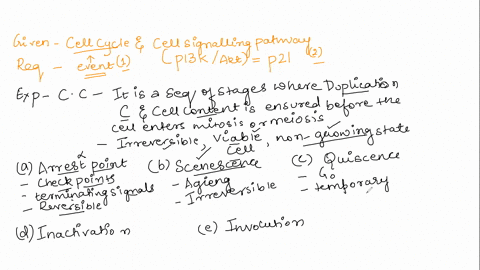 Given - Cell Cycle & Cell signalling pathway
Req - event (1) (p13k/Akt) = p21 (2)
Exp - C.C - It is a seq of stages where Duplication
C & Cell content is ensured before the
cell enters mitosis or meiosis
- Irreversible, viable, non-growing state
cell
(a) Arrest point (b) Scenescence (c) Quiscence
- Check points - Agieng - G0
- terminating signals - Irreversible - temporary
- Reversible
(d) Inactivation (e) Involution